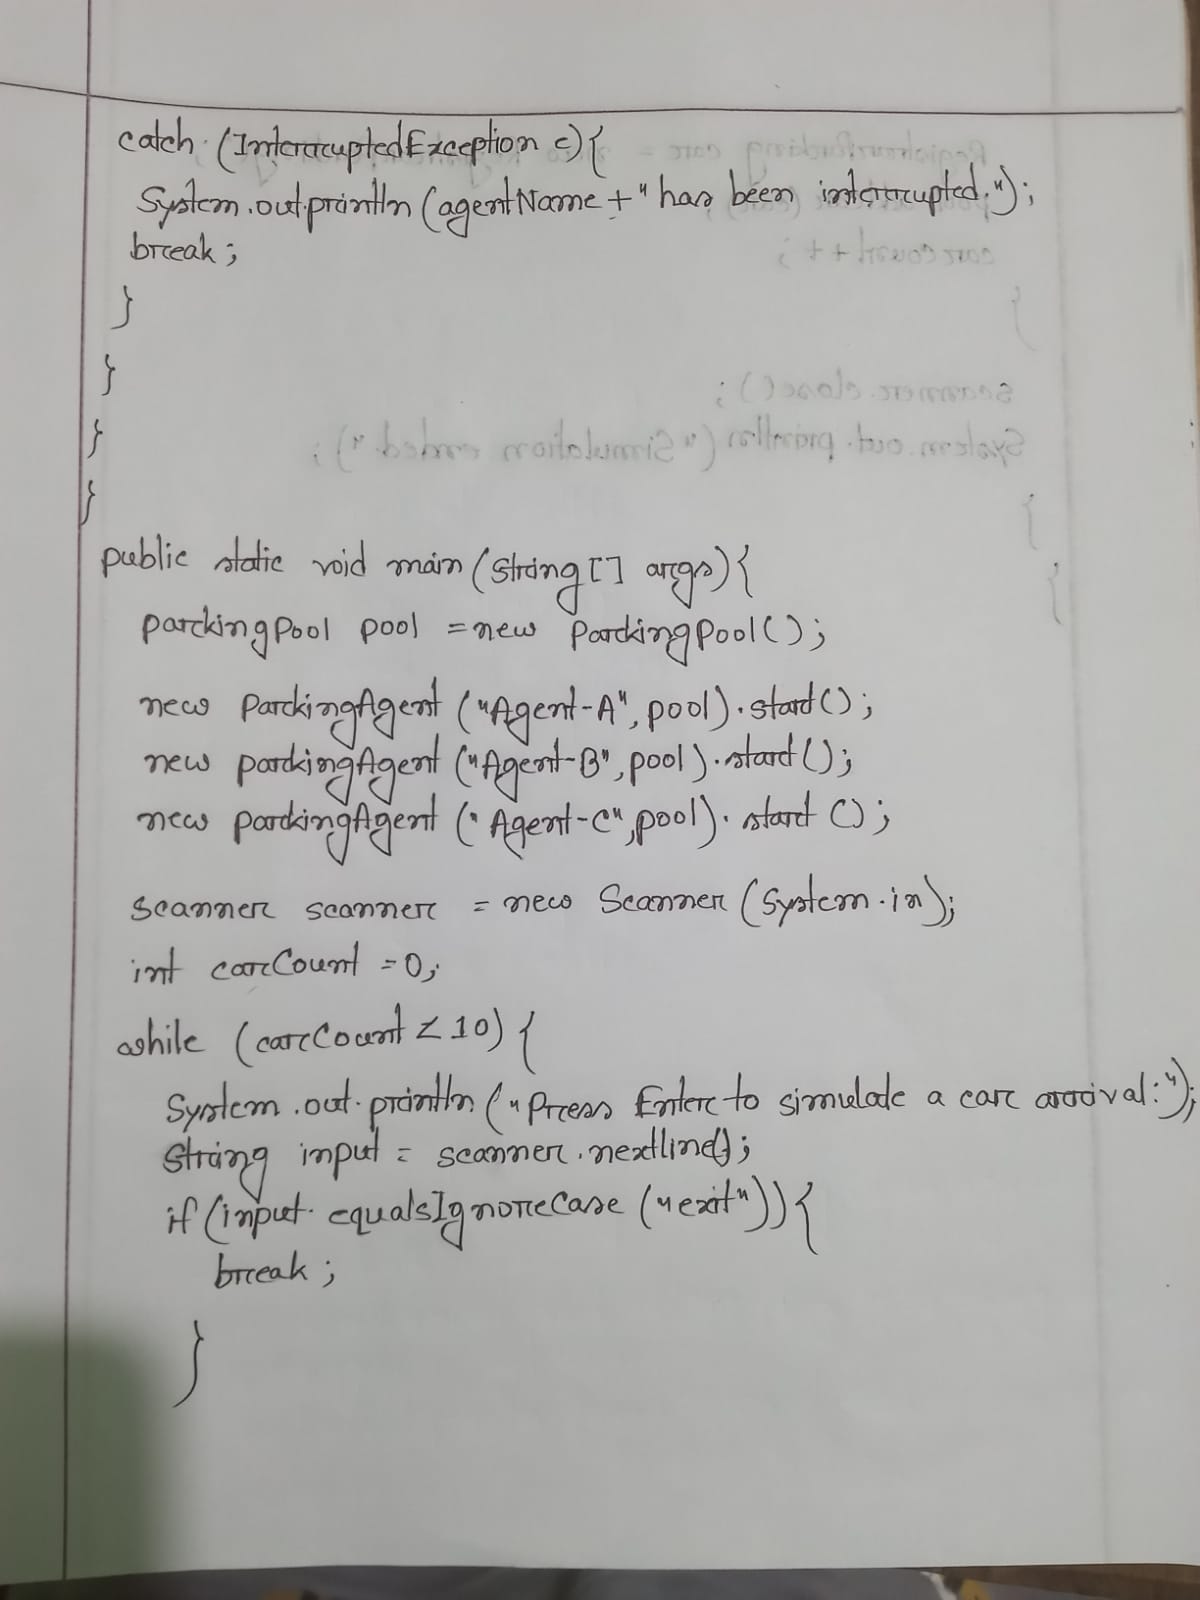 catch (InterruptedException e){
System.out.println(agentName+" has been interrupted.");
break;
}
}
}
}
public static void main(String[] args){
parkingPool pool = new ParkingPool();
new ParkingAgent ("Agent-A", pool).start();
new parkingAgent ("Agent-B", pool).start();
new parkingAgent ("Agent-C", pool).start();
Scanner scanner = new Scanner (System.in);
int carCount = 0;
while (carCount < 10) {
System.out.println ("Press Enter to simulate a car arrival:");
String input = scanner.nextline();
if (input.equalsIgnoreCase ("exit")){
break;
}